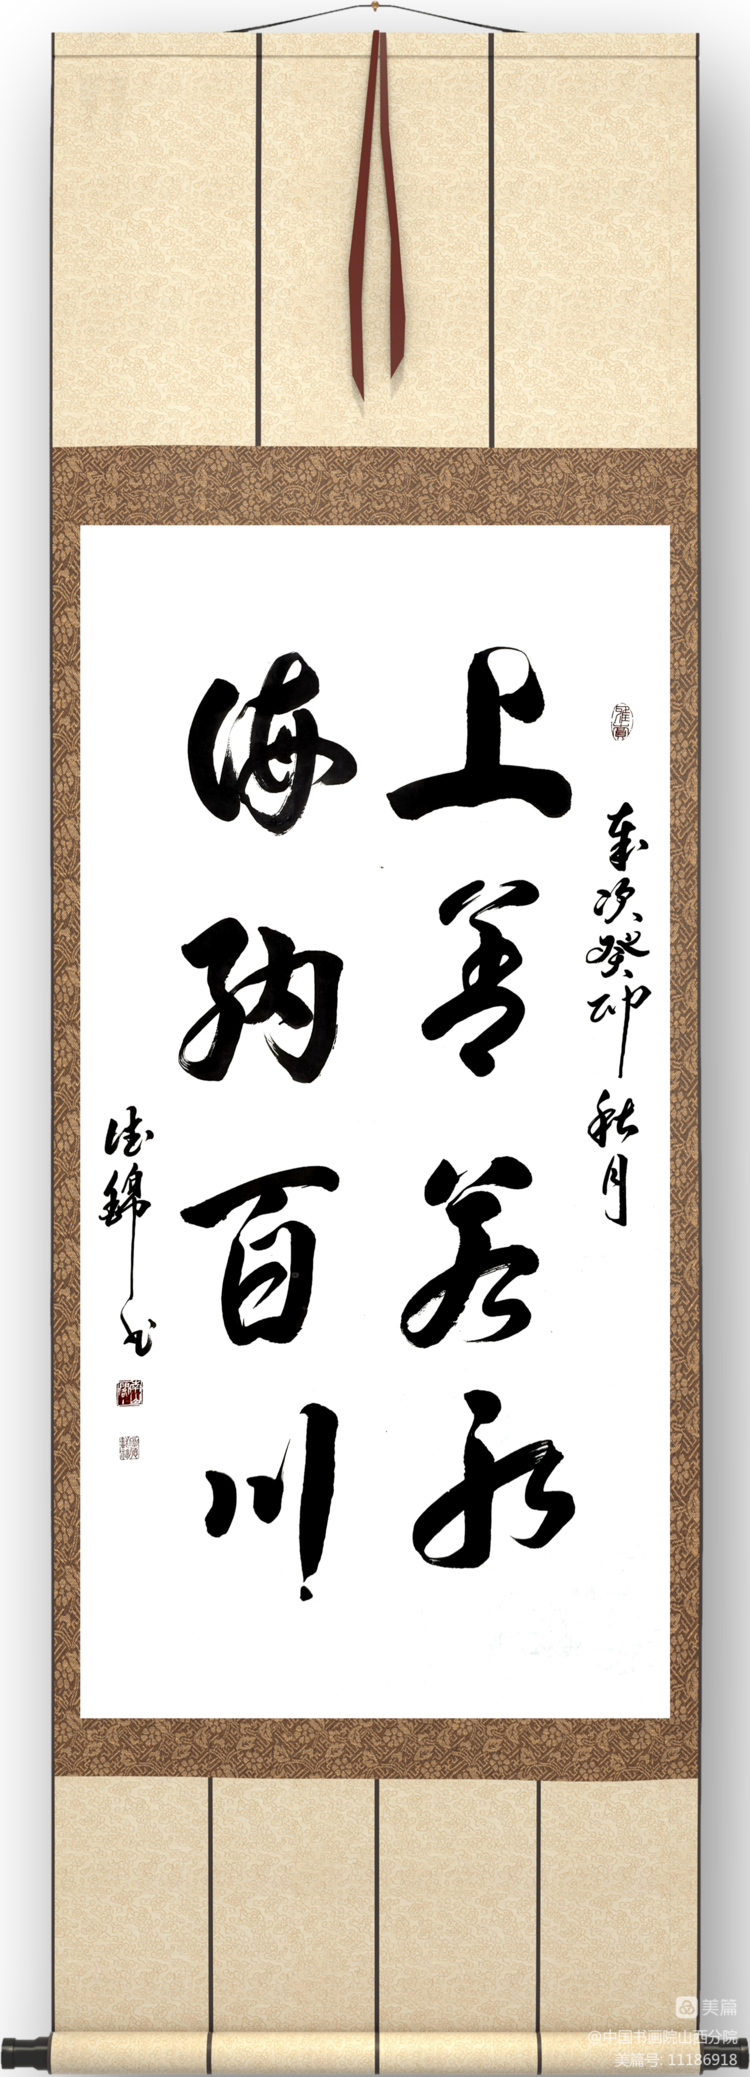 歲次癸卯秋月
上善若水
海納百川
德錦书
美篇
@中国书画院山西分院
美篇号: 11186918